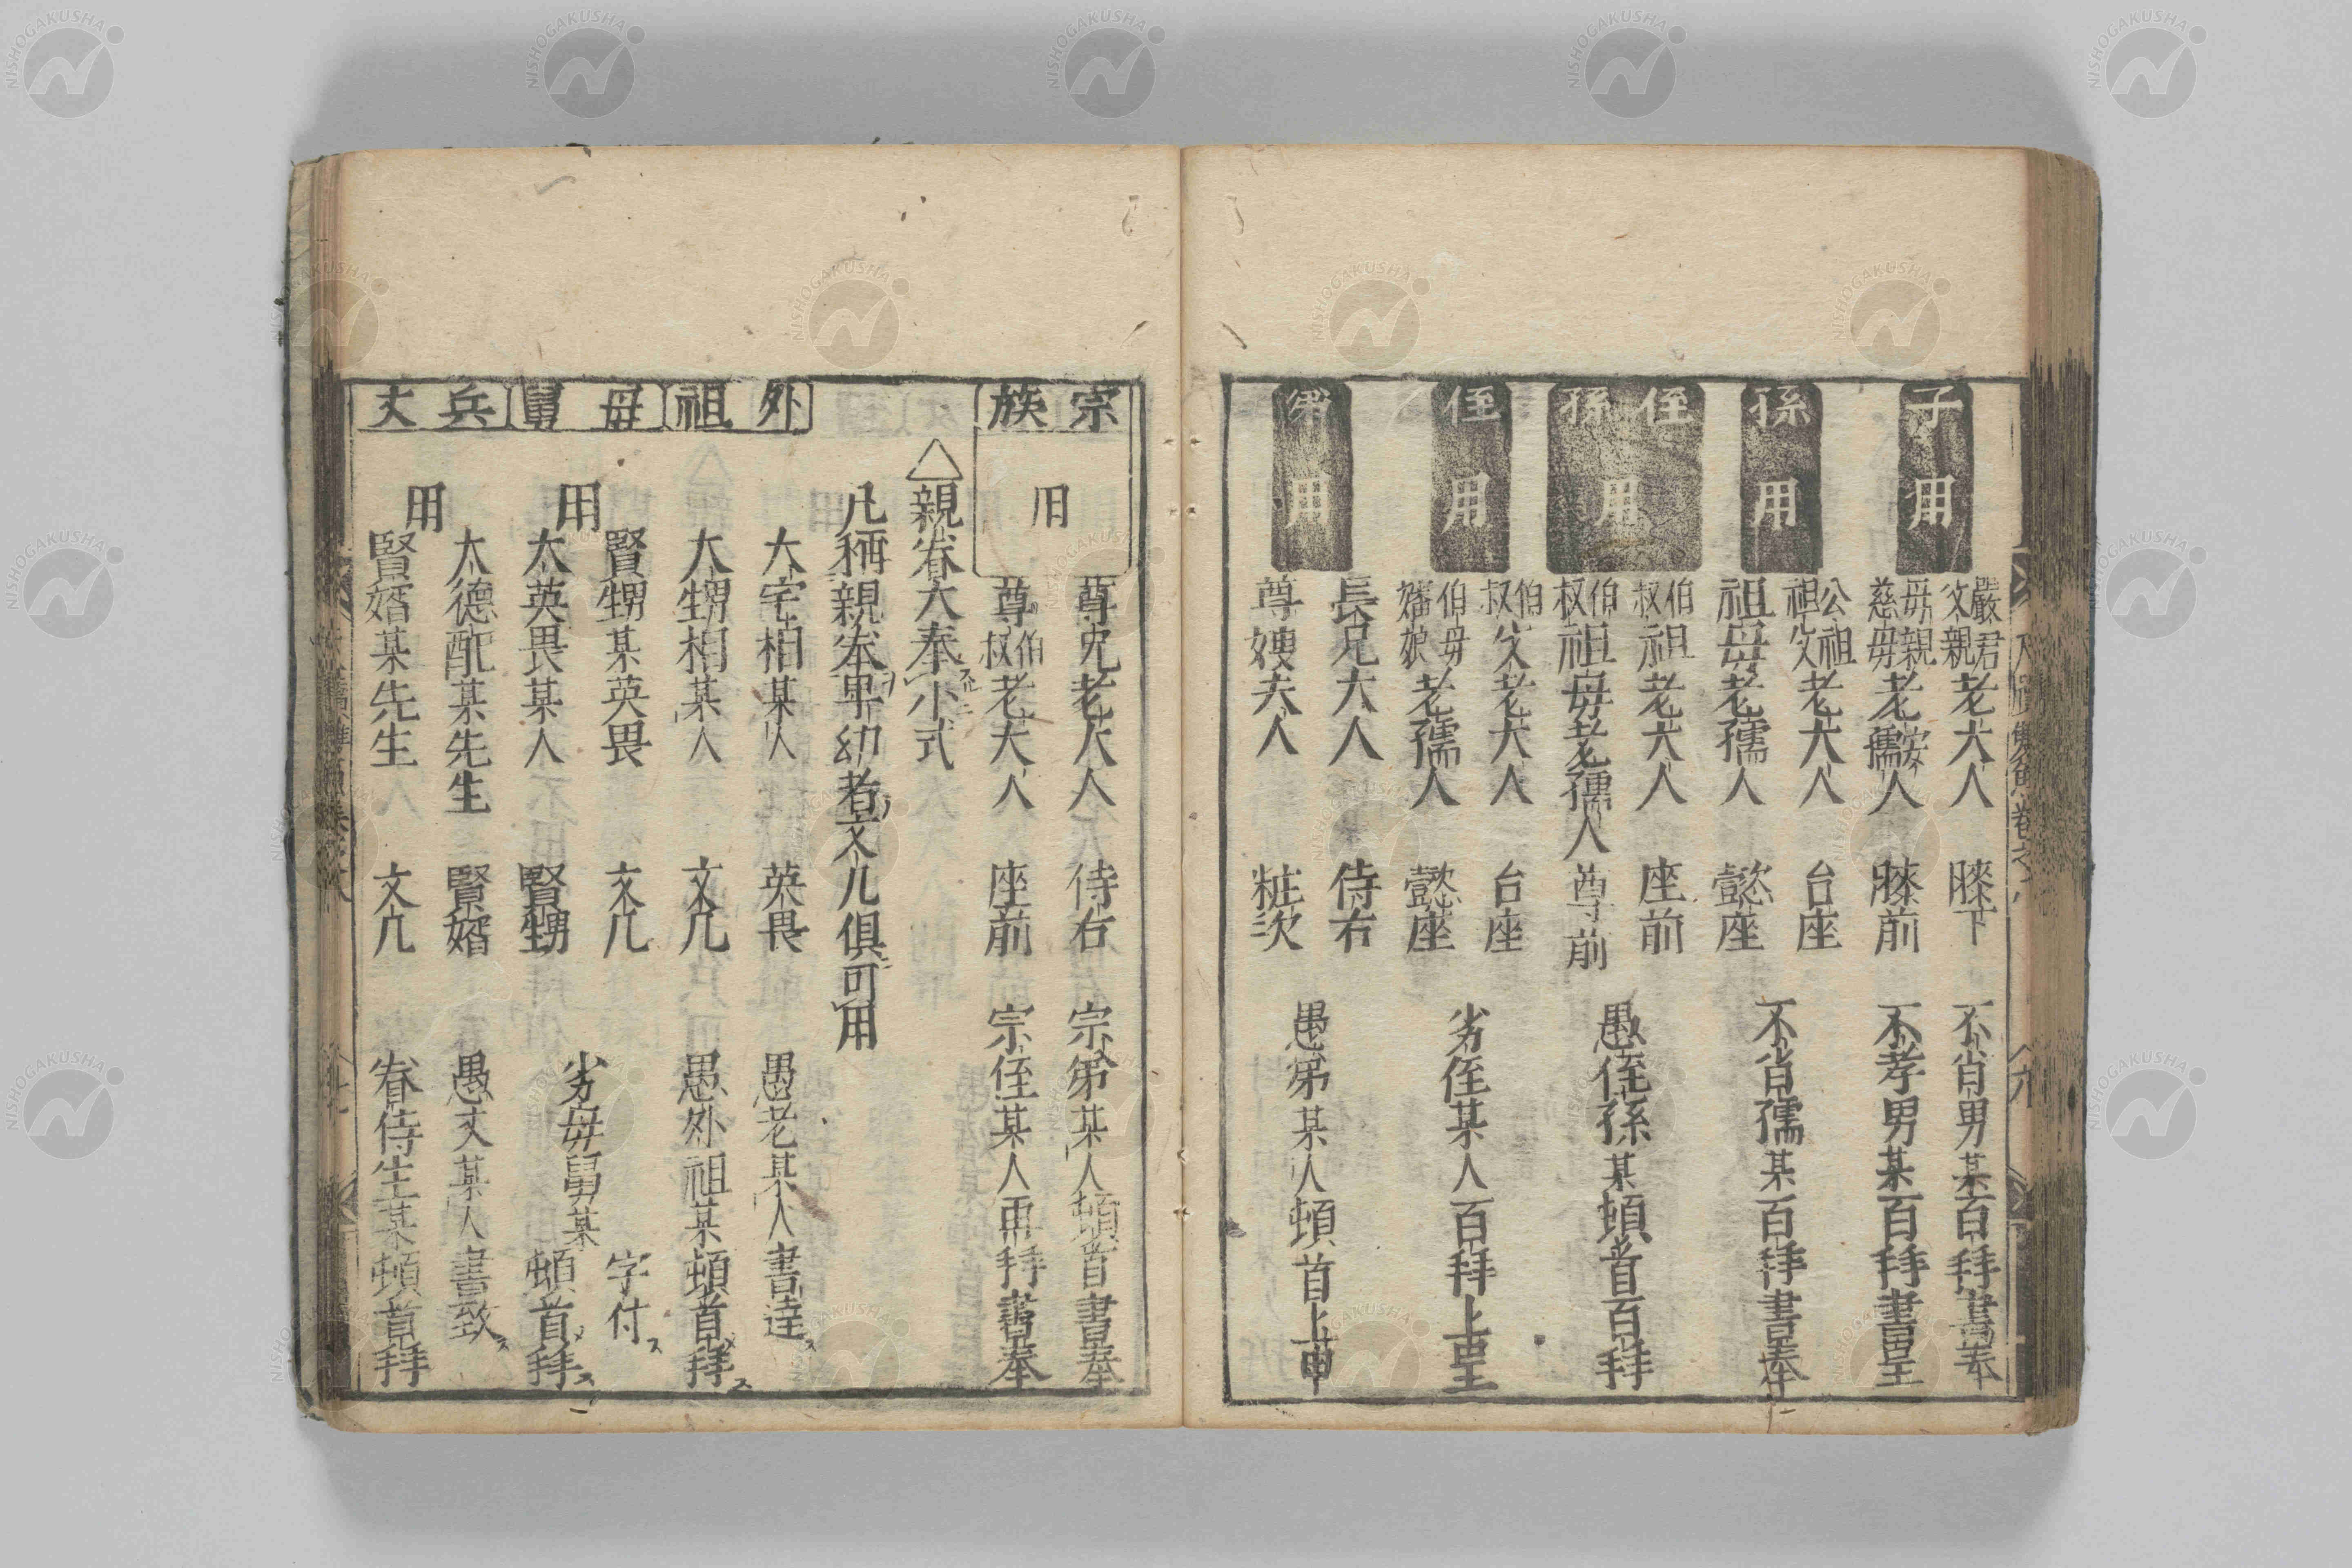 子用
嚴君父親老大人 膝下 不肖男某百拜書奉
母親慈母老安孺人 膝前 不孝男某百拜書呈
孫用
公祖祖父老大人 台座 不肖孺某百拜書奉
祖母老孺人 懿座
侄孫用
伯叔祖老大人 座前 愚侄孫某頓首百拜
伯叔祖母老孺人 尊前
侄用
伯叔父老大人 台座 劣侄某人百拜上呈
伯母嬸娘老孺人 懿座
弟用
長兄大人 侍右 愚弟某人頓首上申
尊嫂夫人 粧次
宗族用
尊兄老大人 侍右 宗弟某人頓首書奉
尊伯叔老大人 座前 宗侄某人再拜書奉
△親眷大奉小式
凡稱親眷卑幼者文几俱可用
外祖
大宅相某人 英畏 愚老某人書達ス
大甥相某人 文几 愚外祖某頓首拜ス
母舅用
賢甥某英畏 文几 字付ス
大英畏某人 賢甥 劣母舅某頓首拜ス
兵丈用
大德配某先生 賢婿 愚丈某人書致ス
賢婿某先生 文几 眷侍生某頓首拜
NISHOGAKUSHA